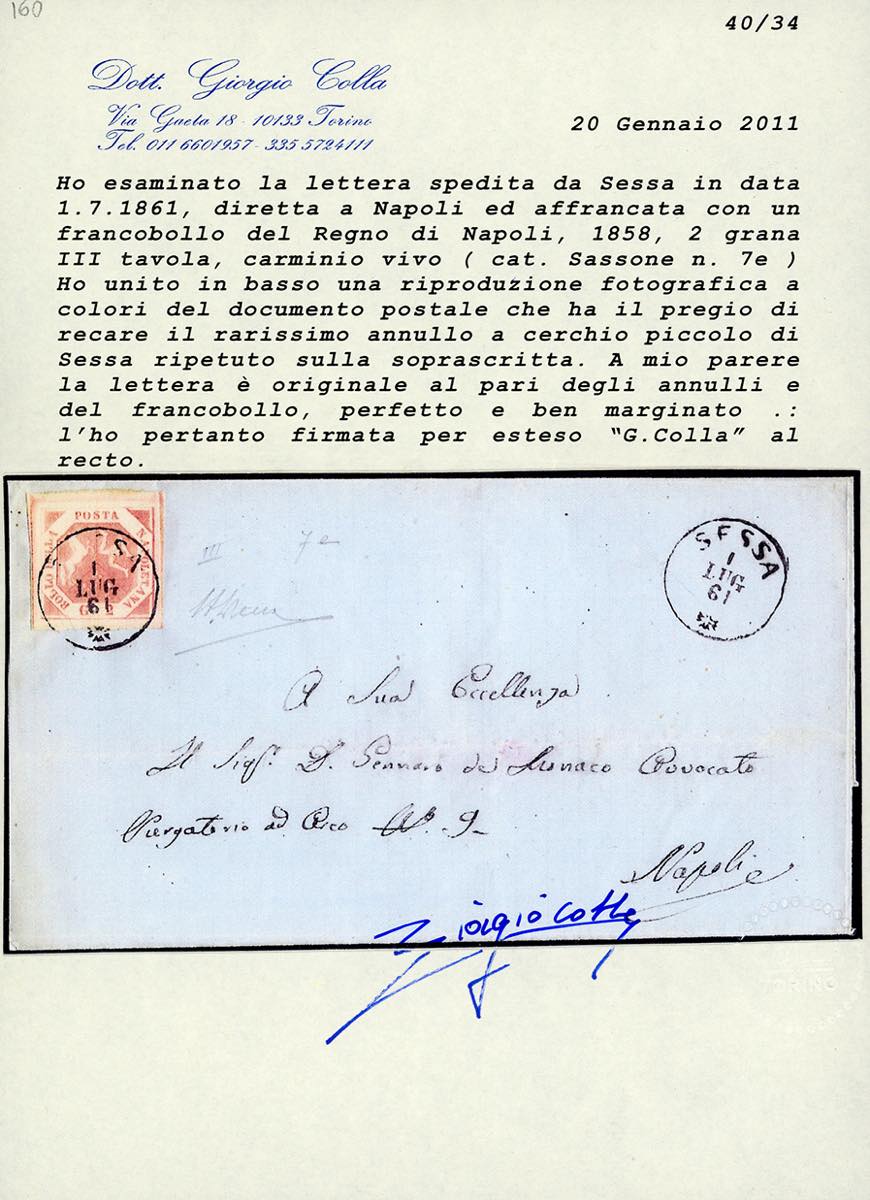 160
40/34
Dott. Giorgio Colla
Via Gaeta 18 - 10133 Torino
Tel. 011 6601957 - 335 5724111
20 Gennaio 2011
Ho esaminato la lettera spedita da Sessa in data
1.7.1861, diretta a Napoli ed affrancata con un
francobollo del Regno di Napoli, 1858, 2 grana
III tavola, carminio vivo ( cat. Sassone n. 7e )
Ho unito in basso una riproduzione fotografica a
colori del documento postale che ha il pregio di
recare il rarissimo annullo a cerchio piccolo di
Sessa ripetuto sulla soprascritta. A mio parere
la lettera è originale al pari degli annulli e
del francobollo, perfetto e ben marginato .:
l'ho pertanto firmata per esteso "G.Colla" al
recto.
POSTA
NAPOLETANA
BOLLO
G 2
SA
1
LUG
61
III 7e
SESSA
1
LUG
61
A Sua Eccellenza
Il Sigr. D. Gennaro de Monaco Avvocato
Purgatorio ad Arco No. 9
Napoli
Giorgio Colla
TORINO